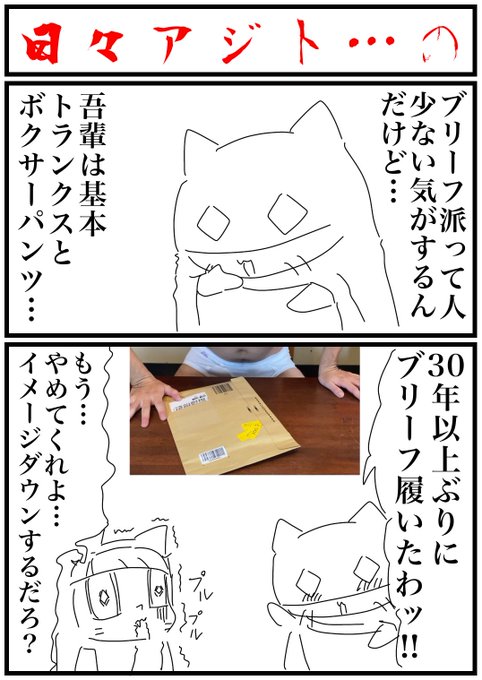 日々アジト…の
ブリーフ派って人
少ない気がするん
だけど…
吾輩は基本
トランクスと
ボクサーパンツ…
30年以上ぶりに
ブリーフ履いたわッ!!
もう…
やめてくれよ…
イメージダウンするだろ？
プル
プル